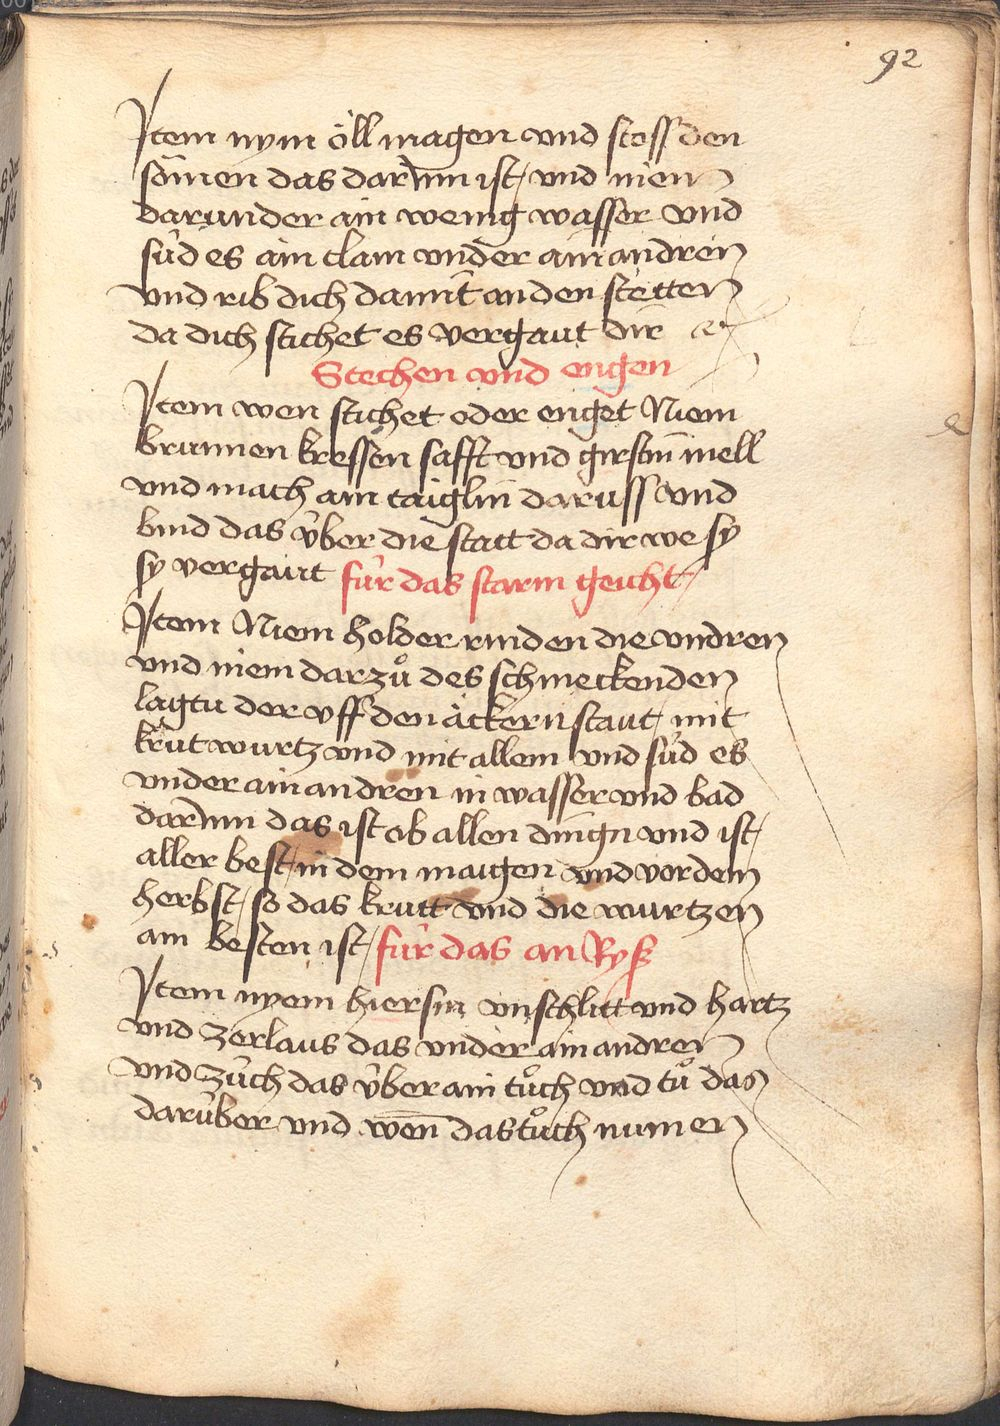 92
Item nym öll magen vnd stoss den
sömen das darinn ist / vnd niem
darunder ain wenig wasser vnd
süd es ain clain vnder ainandren
vnd rib dich damit an den stetten
da dich stichet es vergaut dir
Stechen vnd engen
Item wen stichet oder enget Niem
brunnen kressen safft vnd girstin mell
vnd mach ain taiglin daruss vnd
bind das über die statt da dir we sy
sy vergaut für das starm geicht /
Item Niem holder rinden die vndren
vnd niem darzů des schmeckenden
lagtu der vff den äckern staut / mit
krut wurtz vnd mit allem vnd süd es
vnder ainandren in wasser vnd bad
darinn das ist ob allen dingn vnd ist /
aller best / in dem maigen vnd vor dem
herbst / so das krutt vnd die wurtzen
am besten ist / für das an Ryß
Item nyem hiersin vnschlitt vnd hartz
vnd zerlaus das vnder ainandren
vnd züch das über ain tůch vnd tů das
darüber vnd wen̄ das tůch numen